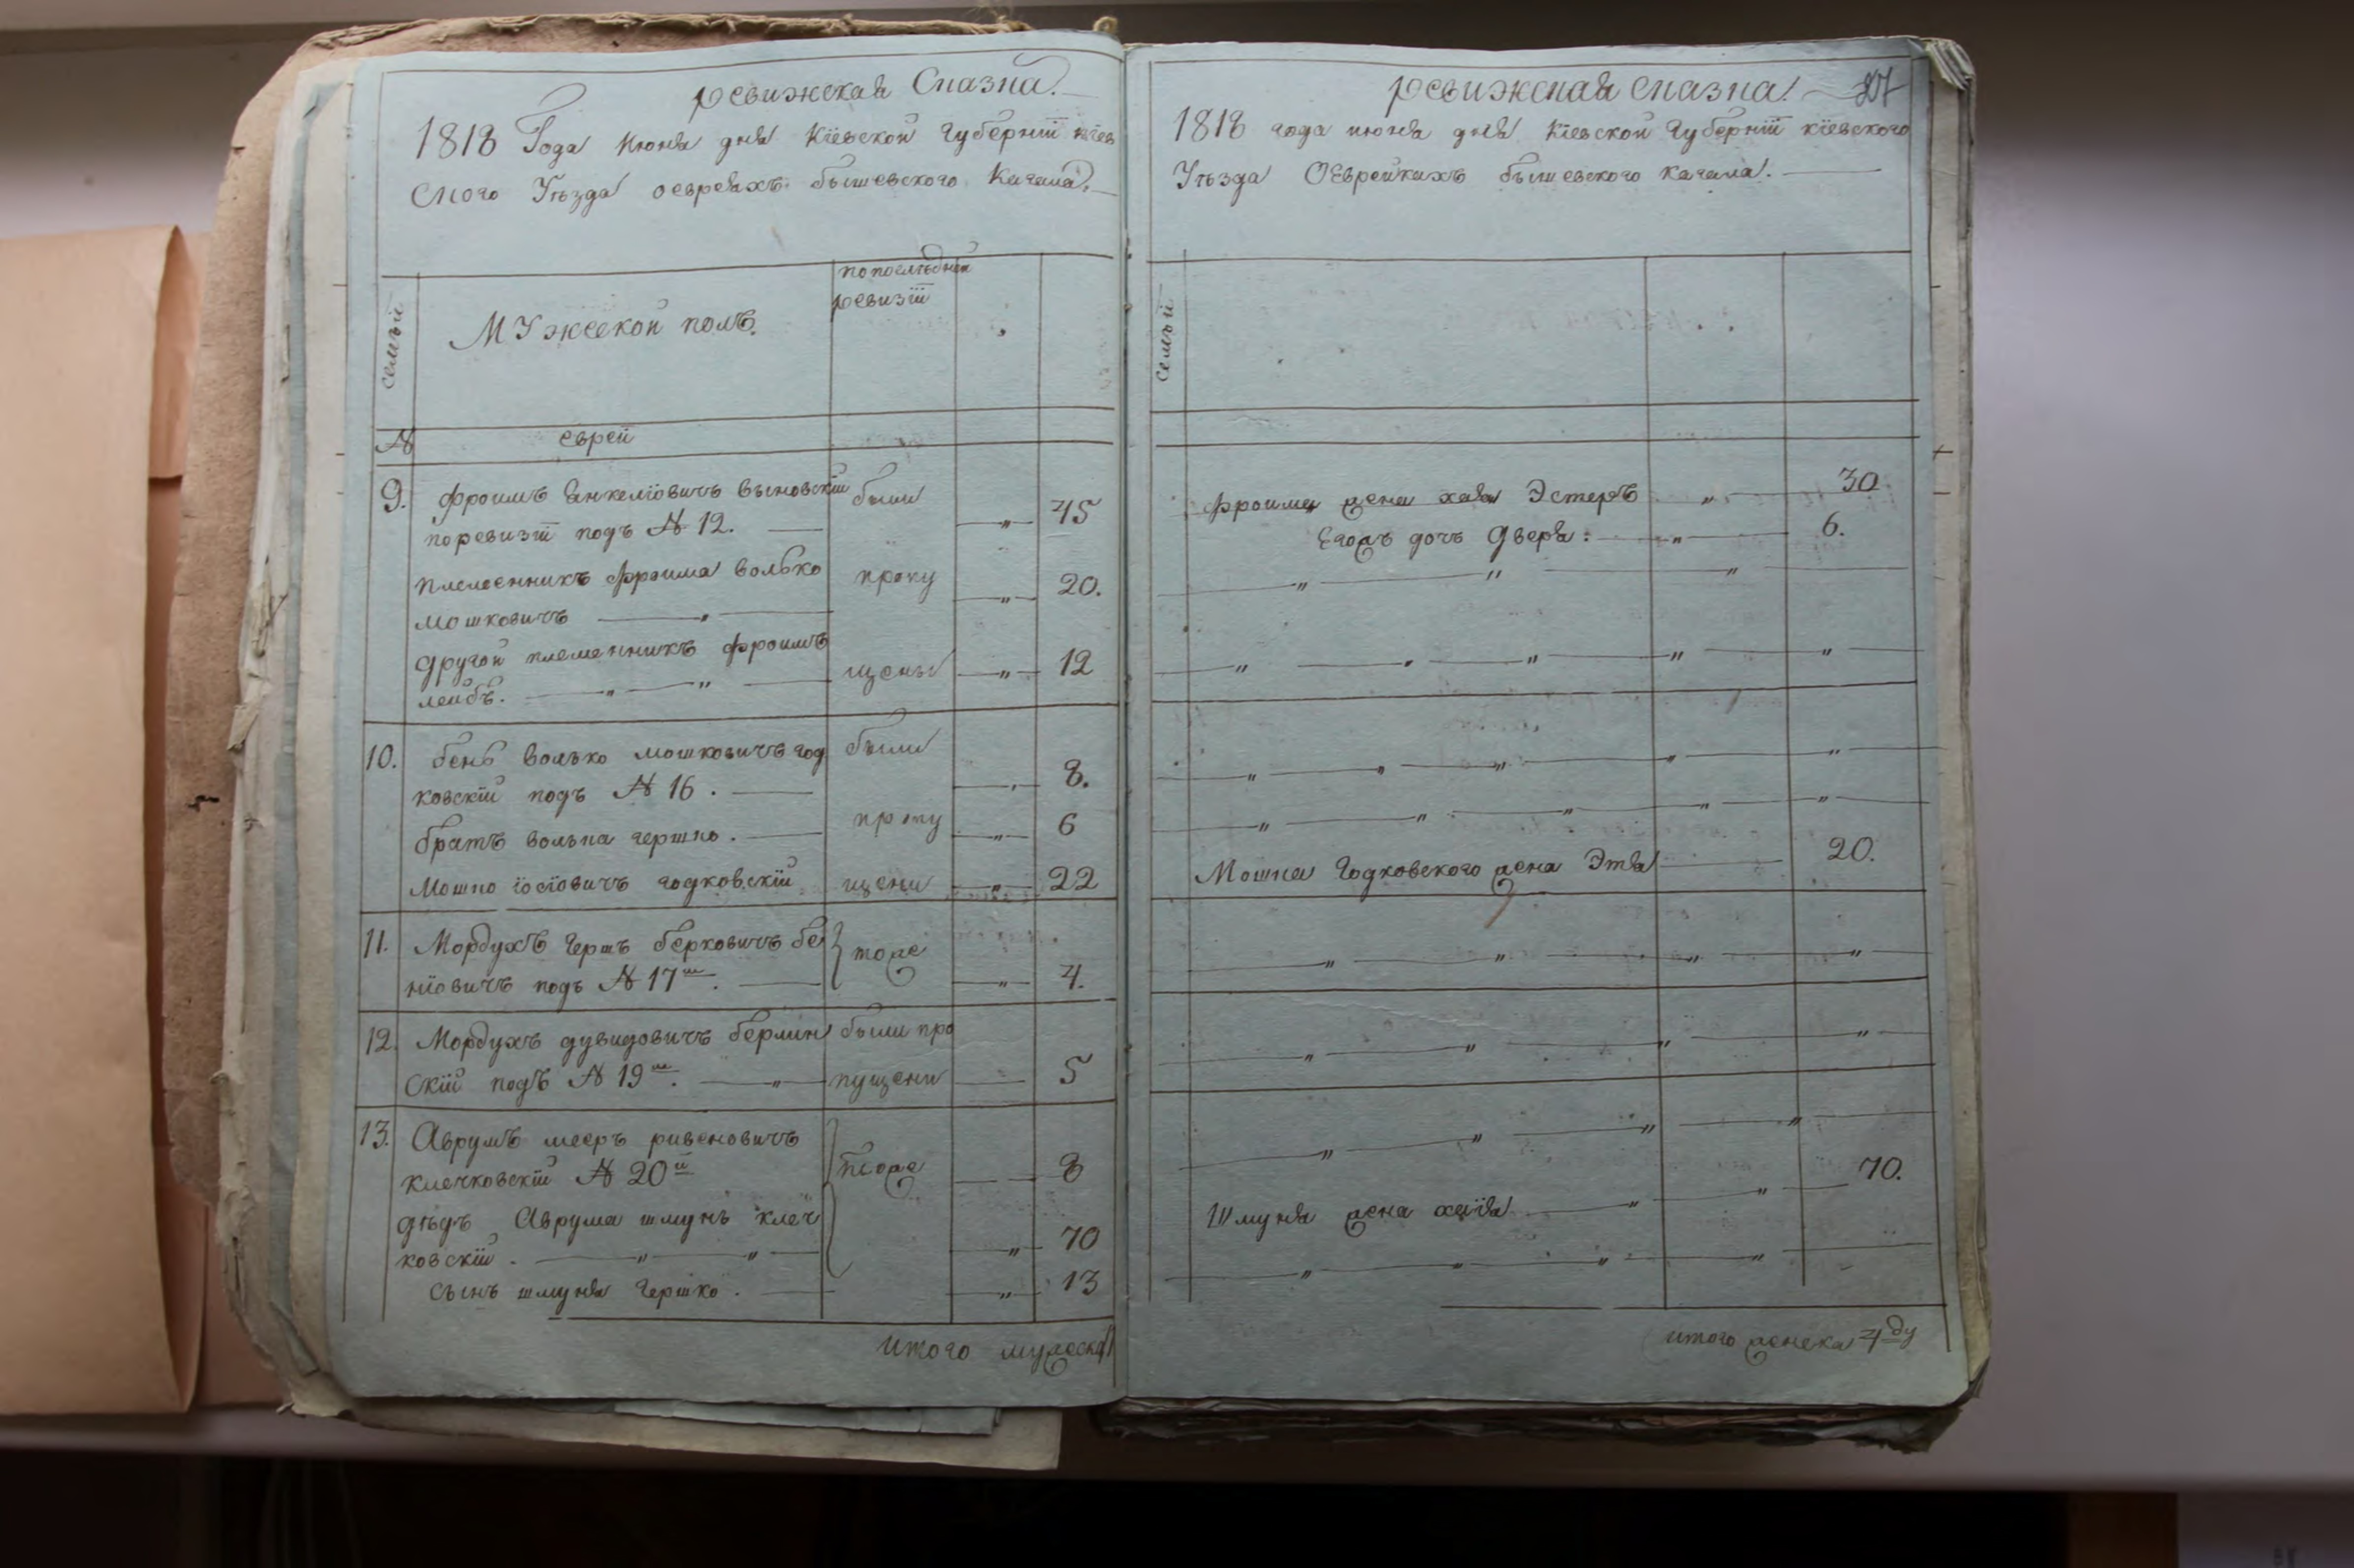 ревижская Сказка.
1818 Года Июня дня Кіевской Губерніи Кіев
ского Уѣзда оевреяхъ бышевского Кагала.
семьи
Мужеской полъ.
попослѣдней
ревизіи
№
еврей
9. Фроимъ Янкеліовичъ
были
поревизіи подъ № 12.
45
племенникъ Фроима Волько
пропу
20.
Мошковичъ
Другой племенникъ Фроимъ
щены
12
леибъ.
10. бень Волько Мошковичъ год
были
ковскій подъ № 16.
8.
пропу
братъ волька гершко.
6
Мошко іосіовичъ годковскій
щени
22
11. Мордухъ Гершъ берковичъ бе
тоже
ніовичъ подъ № 17м.
4.
12. Мордухъ дувидовичъ берлин
были про
скій подъ № 19м.
пущени
5
13. Аврумъ мееръ ривеновичъ
клечковскій № 20й
тоже
8
дѣдъ Аврума шмунь клеч
70
ковскій.
сынъ шмуня Гершко.
13
итого мужеска
ревижская сказка.
1818 года июня дня Кіевской Губерніи кіевского
Уѣзда бышевского кагала.
семьи
Фроима жена хая Эстеръ
30
Егожъ дочь Дверя.
6.
Мошка Годковского жена Этя
20.
Шмуня жена хаія
70.
итого женска 4ду